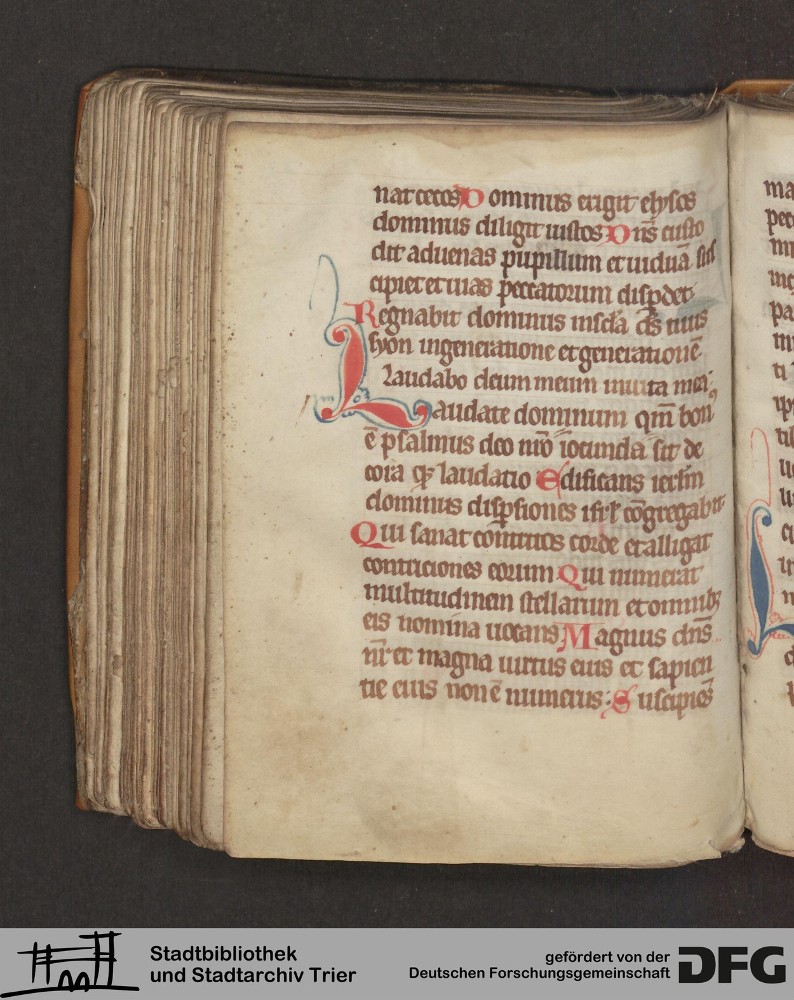 nat cecos Dominus erigit elysos
dominus diligit iustos Dn̄s custo
dit aduenas pupillum et uiduā sus
cipiet et uias peccatorum disp̄det
Regnabit dominus in sc̄la ds̄ tuus
syon in generatione et generationē
Laudabo deum meum in uita mea
Laudate dominum qm̄ bon᷒
ē psalmus deo nr̄o iocunda sit de
cora qꝫ laudatio Edificans ierl̄m
dominus disp̄siones isrl̄ cōgregabit
Qui sanat contritos corde et alligat
contriciones eorum Qui numerat
multitudinem stellarum et omnibꝫ
eis nomina uocans Magnus dn̄s
nr̄ et magna uirtus eius et sapien
tie eius non ē numerus: Suscipiēs
ma
pec
Stadtbibliothek
und Stadtarchiv Trier
gefördert von der
Deutschen Forschungsgemeinschaft
DFG